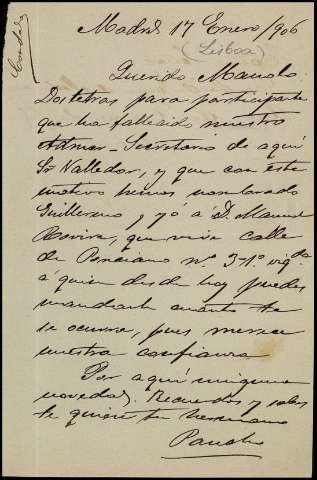 Contada
Madrid 17 Enero/906
(Lisboa)
Querido Manolo:
Dos letras para participarte
que ha fallecido nuestro
Admor-Secretario de aquí
Sr Valledor, y que con este
motivo hemos nombrado
Guillermo y yó á D. Manuel
Rovira, que vive calle
de Ponciano nº 3-1º izqda
á quien desde hoy puedes
mandarle cuanto te
se ocurra, pues merece
nuestra confianza
Por aquí ninguna
novedad. Recuerdos y sabes
te quiere tu hermano
Pancho